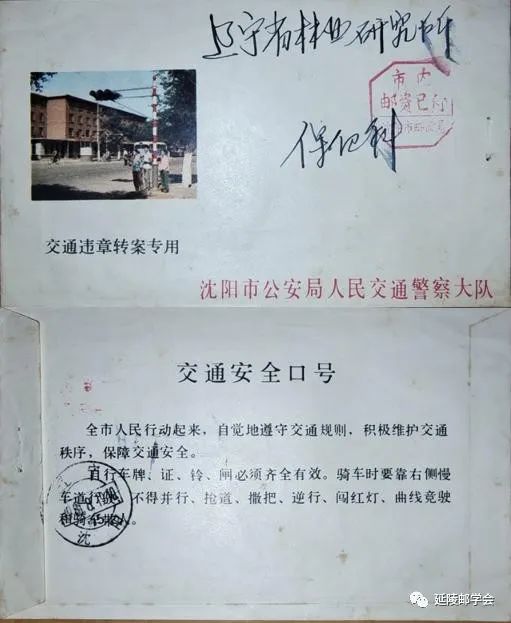 辽宁省林业研究所
市内
邮资已付
保卫科
交通违章转案专用
沈阳市公安局人民交通警察大队
交通安全口号
全市人民行动起来，自觉地遵守交通规则，积极维护交通
秩序，保障交通安全。
自行车牌、证、铃、闸必须齐全有效。骑车时要靠右侧慢
车道行驶，不得并行、抢道、撒把、逆行、闯红灯、曲线竞驶
和骑车带人。
沈
延陵邮学会